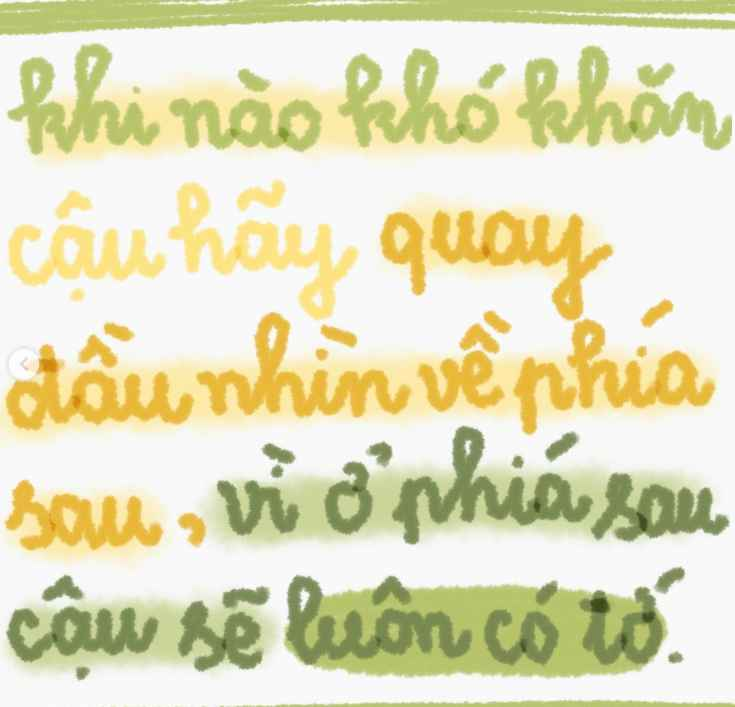 khi nào khó khăn
cậu hãy quay
đầu nhìn về phía
sau, vì ở phía sau
cậu sẽ luôn có tớ.